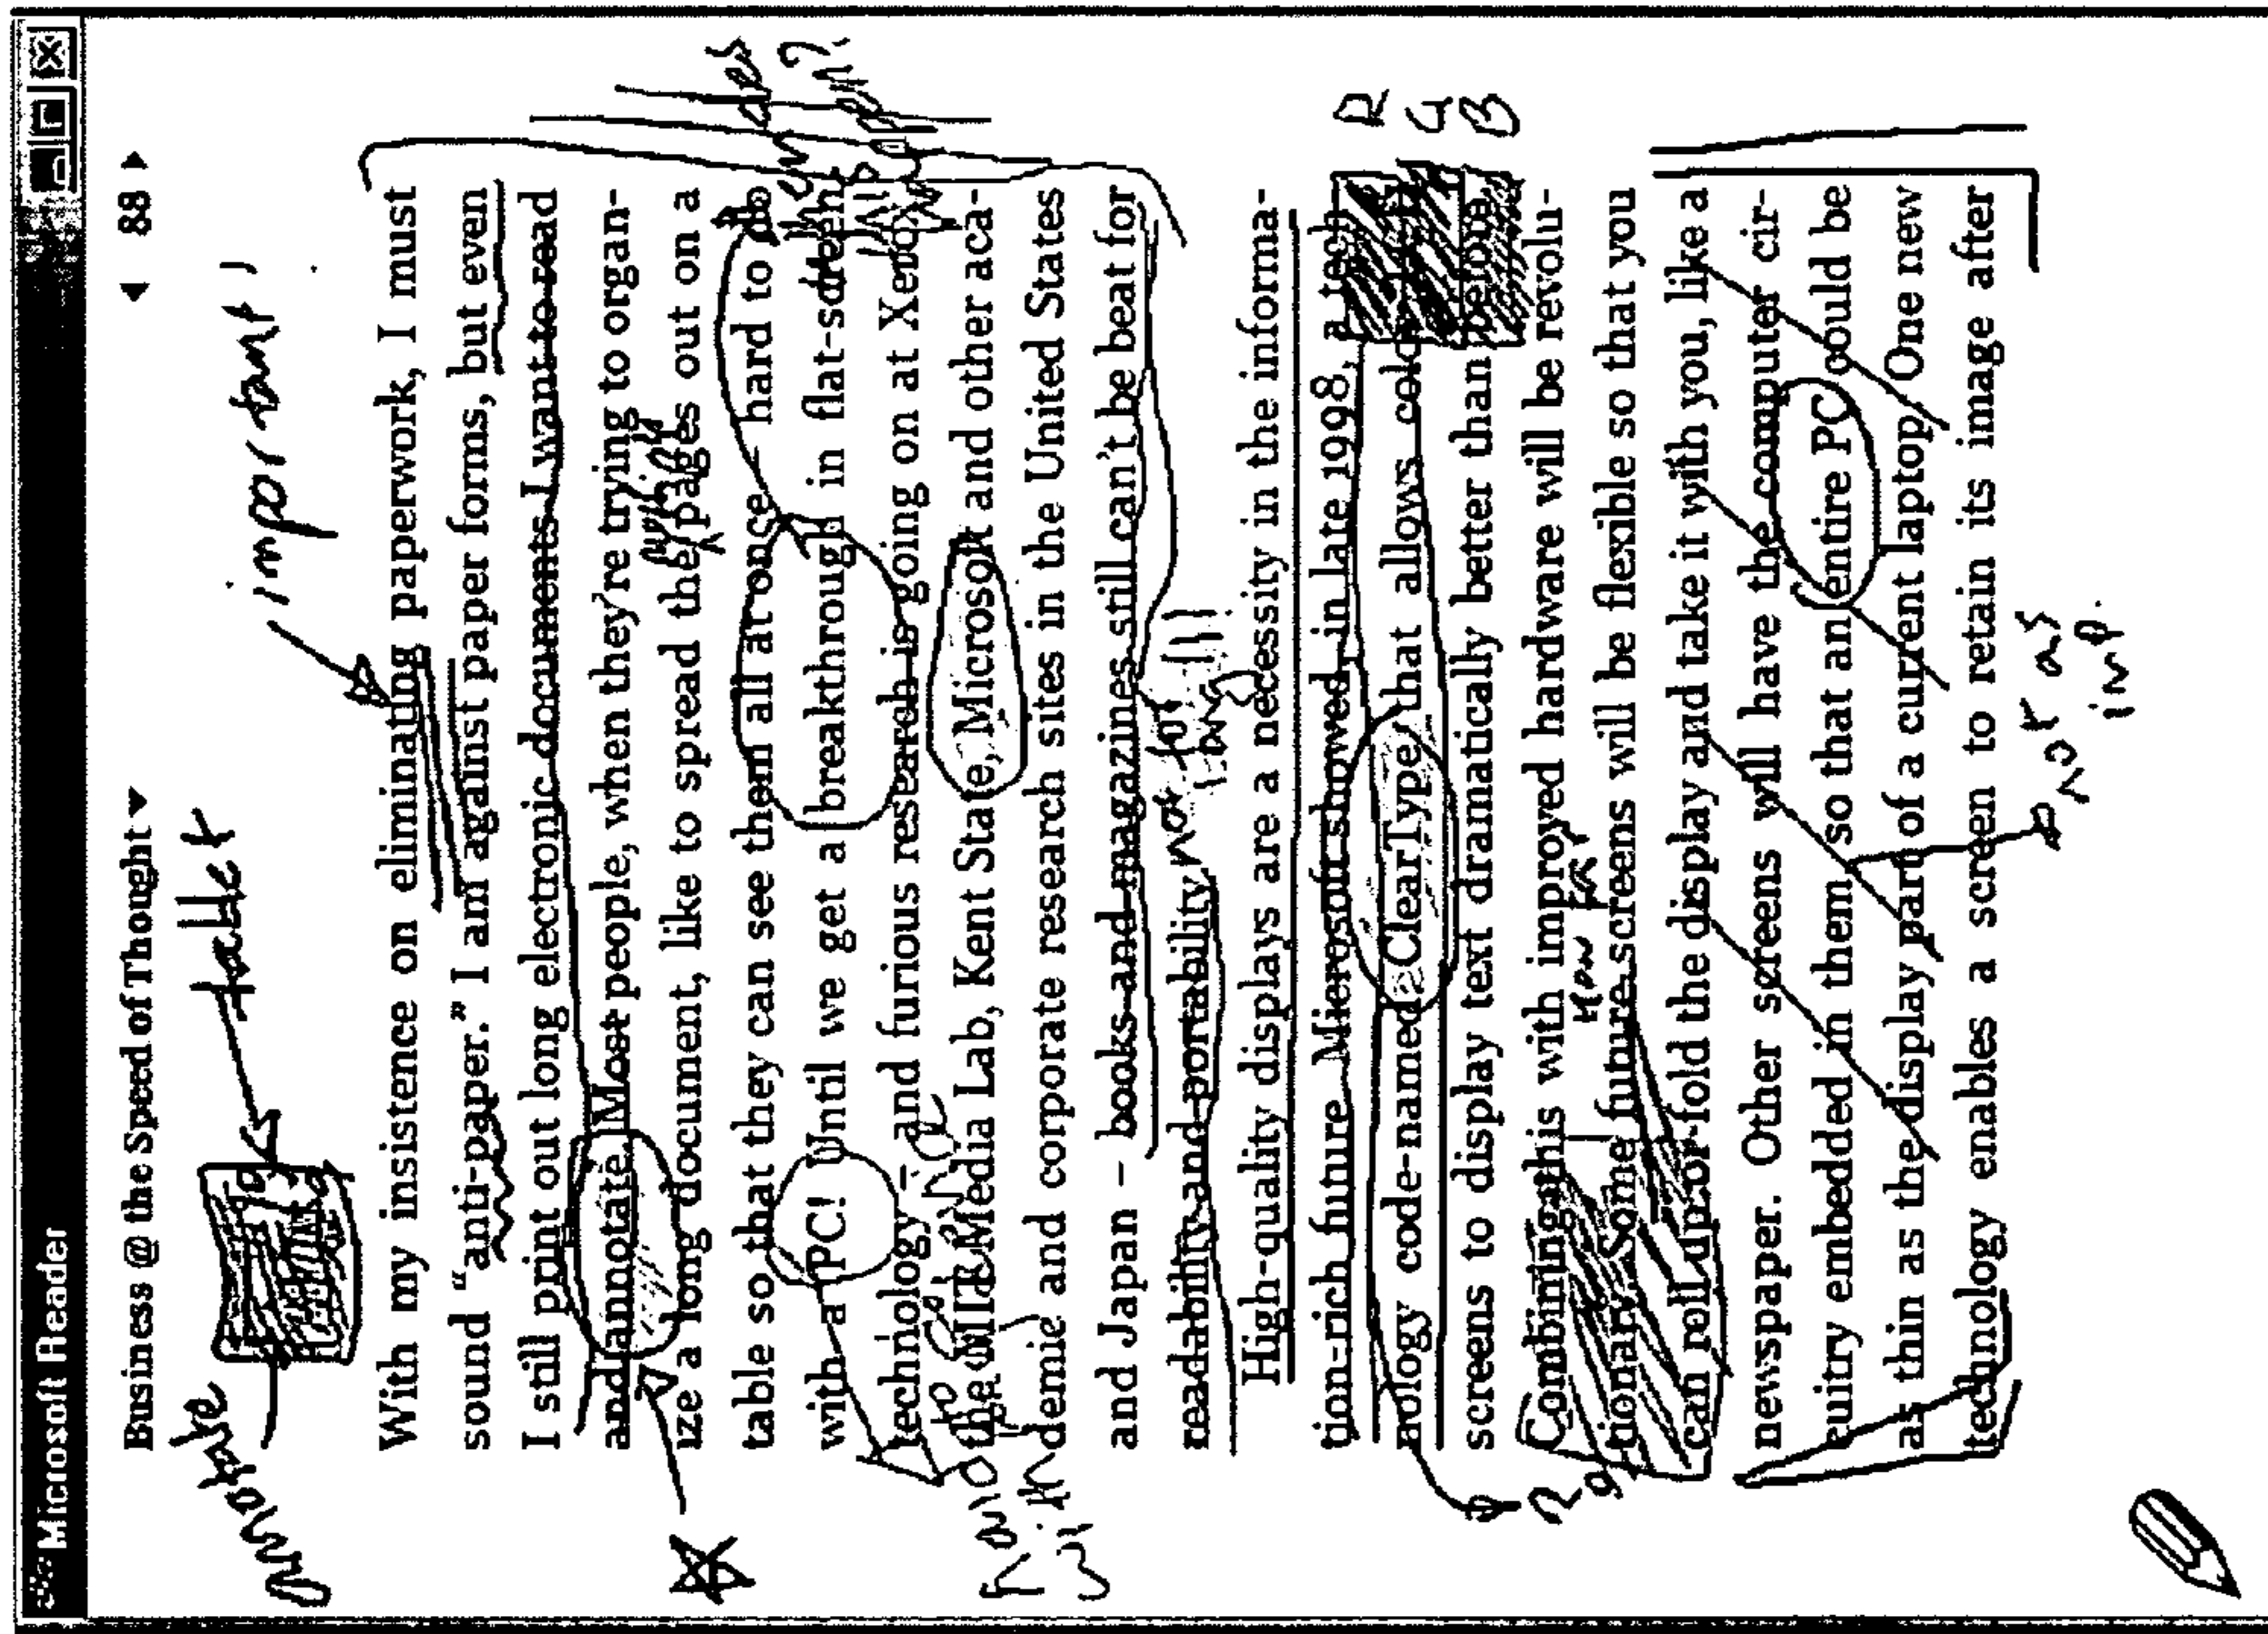 Microsoft Reader
Business @ the Speed of Thought
88
annotate
tablet
important!
With my insistence on eliminating paperwork, I must
sound “anti-paper.” I am against paper forms, but even
I still print out long electronic documents I want to read
and annotate. Most people, when they're trying to organ-
ize a long document, like to spread the pages out on a
table so that they can see them all at once – hard to do
with a PC! Until we get a breakthrough in flat-screen
technology – and furious research is going on at Xerox,
the MIT Media Lab, Kent State, Microsoft and other aca-
demic and corporate research sites in the United States
and Japan – books and magazines still can't be beat for
readability and portability.
not for
long!!!
High-quality displays are a necessity in the informa-
tion-rich future. Microsoft showed, in late 1998, a tech-
nology code-named ClearType that allows color
screens to display text dramatically better than before.
R
G
B
Combining this with improved hardware will be revolu-
tionary. Some future screens will be flexible so that you
can roll up or fold the display and take it with you, like a
newspaper. Other screens will have the computer cir-
cuitry embedded in them so that an entire PC could be
as thin as the display part of a current laptop. One new
technology enables a screen to retain its image after
not as
imp.